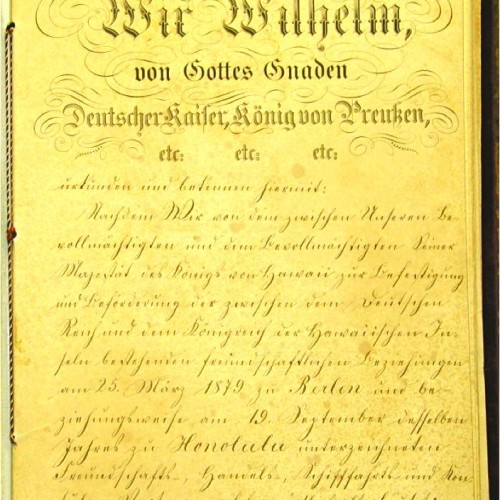 Wir Wilhelm,
von Gottes Gnaden
Deutscher Kaiser, König von Preußen,
etc: etc: etc:
urkunden und bekennen hiermit:
Nachdem Wir von dem zwischen Unseren Be-
vollmächtigten und dem Bevollmächtigten Seiner
Majestät des Königs von Hawaii zur Befestigung
und Beförderung der zwischen dem Deutschen
Reich und dem Königreich der Hawaiischen In-
seln bestehenden freundschaftlichen Beziehungen
am 25. März 1879 zu Berlin und be-
ziehungsweise am 19. September desselben
Jahres zu Honolulu unterzeichneten
Freundschafts-, Handels-, Schifffahrts- und Kon-